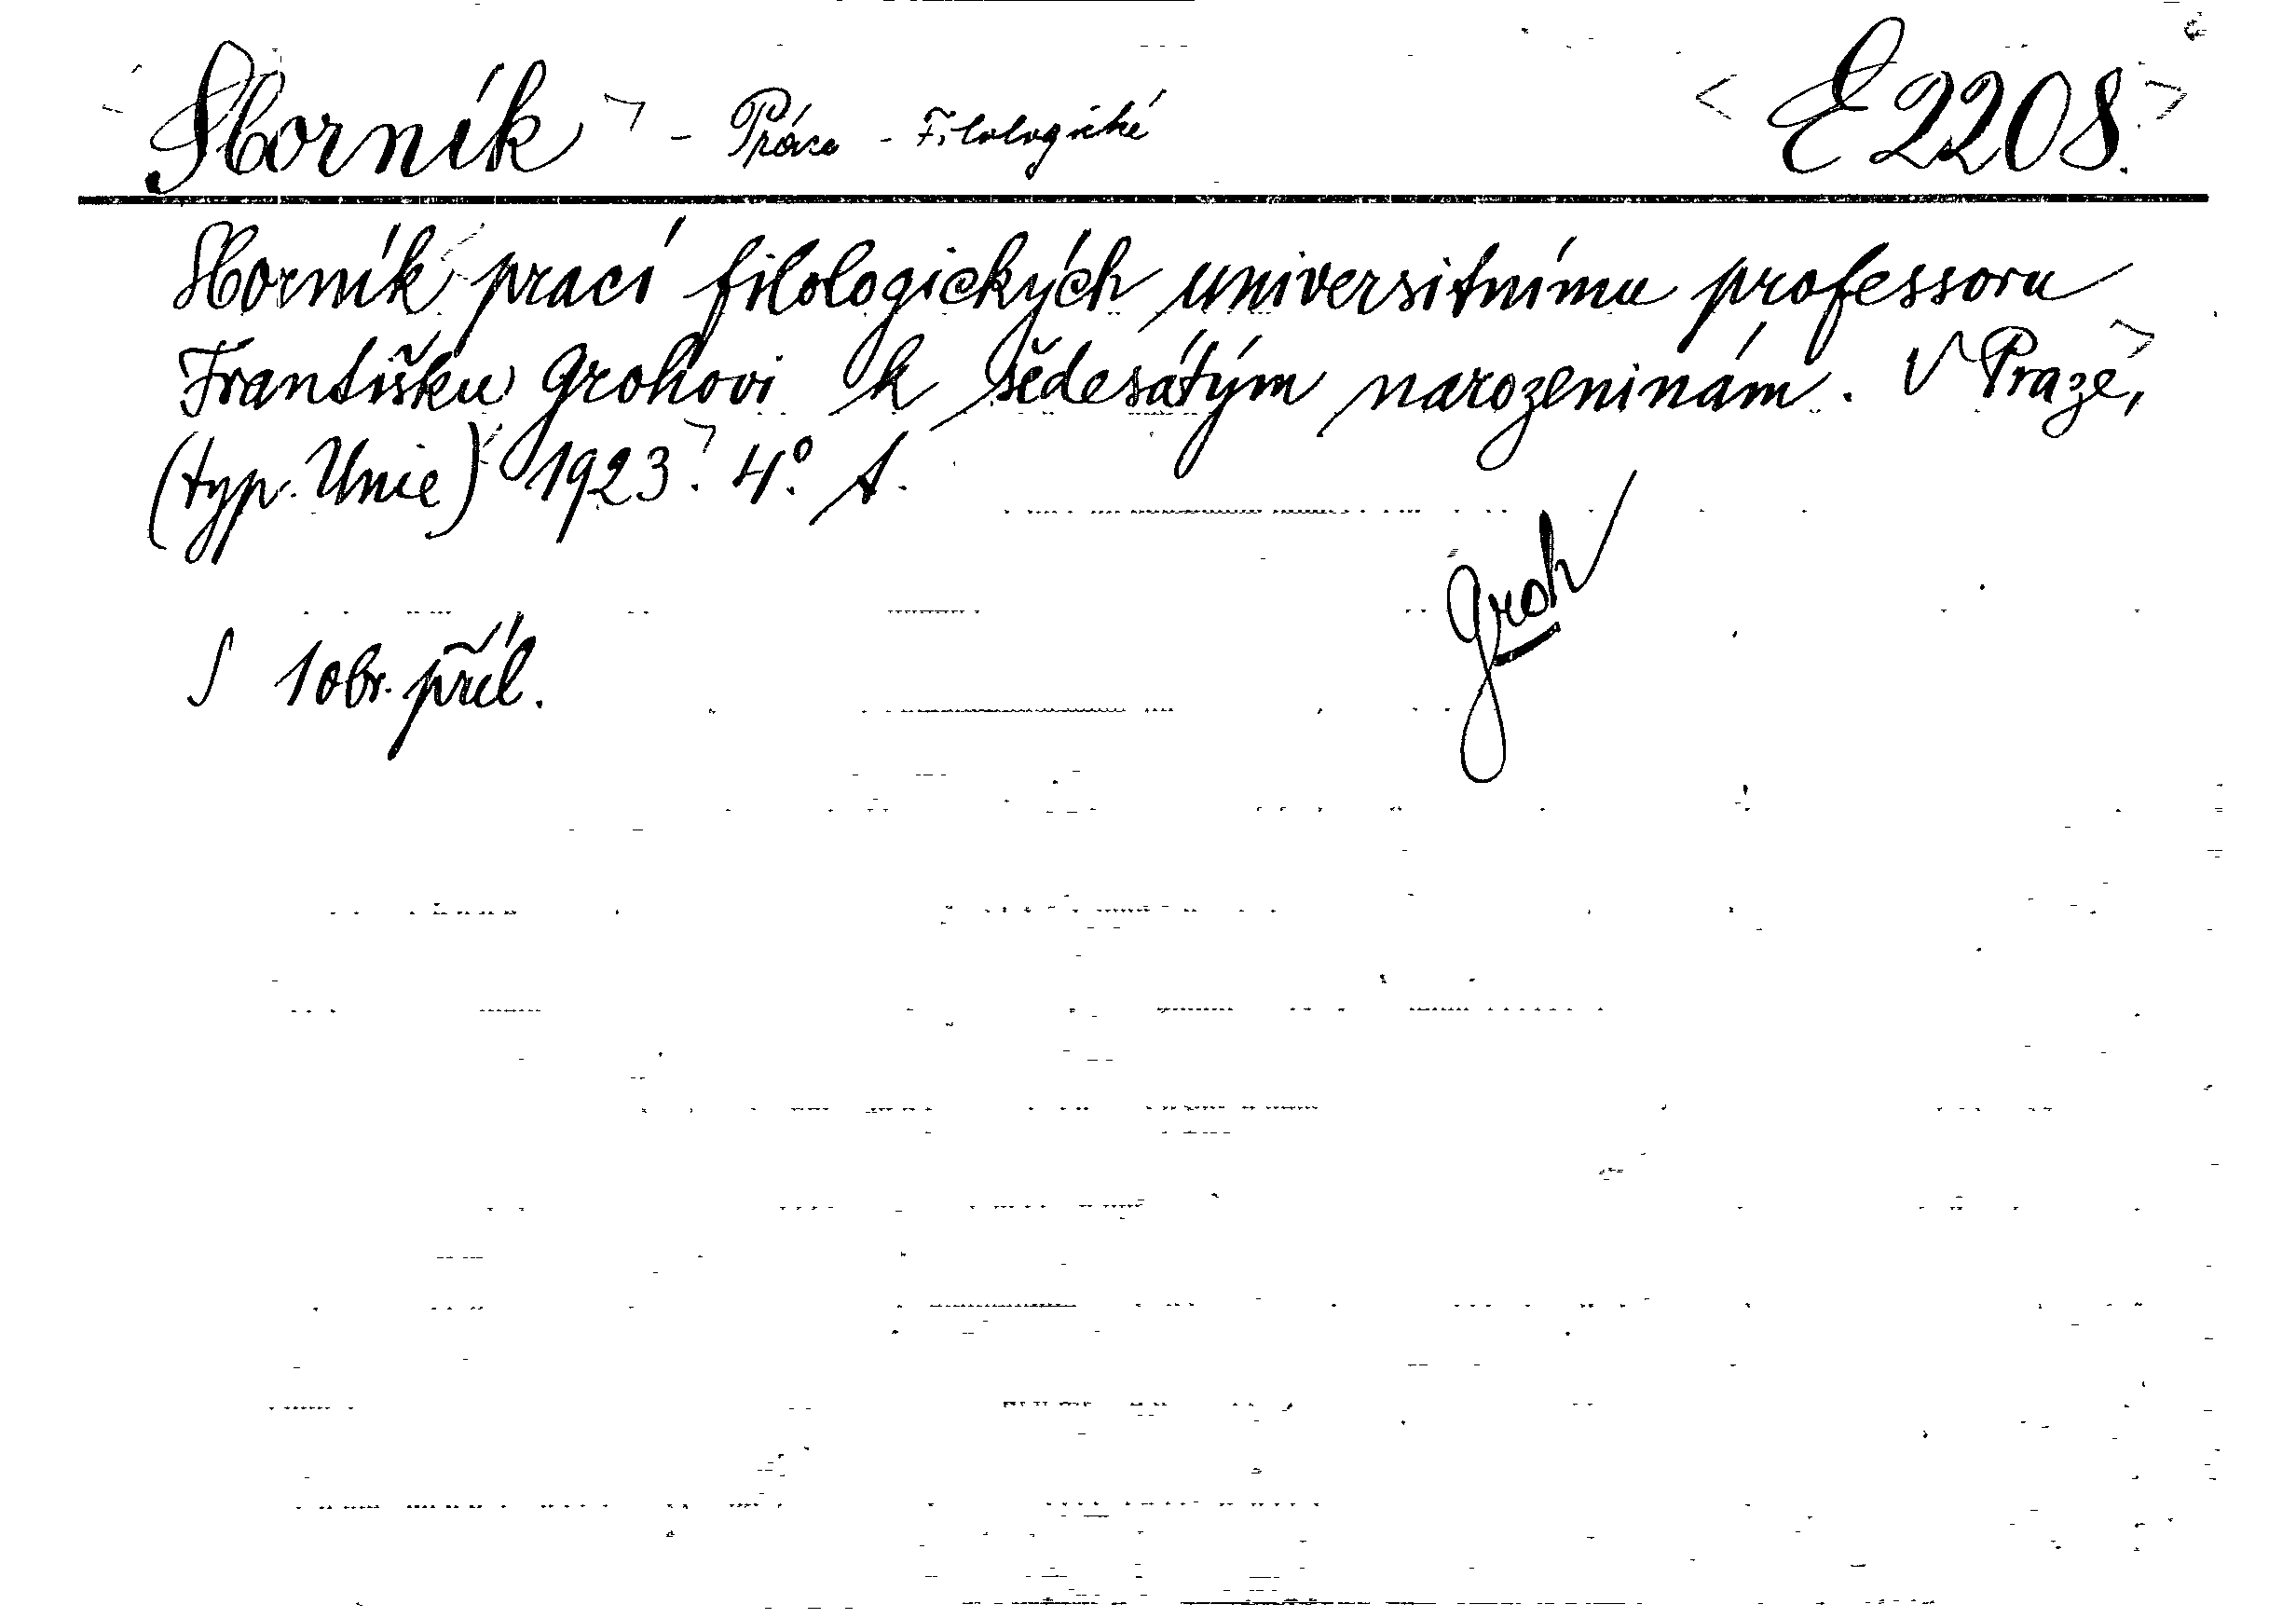 Sborník - Práce - Filologické <E 2208.>
Sborník prací filologických universitnímu professoru
Františku Grohovi k šedesátým narozeninám. V Praze,
(typ. Unie) 1923. 4°. 1.
Groh
S 1 obr. příl.